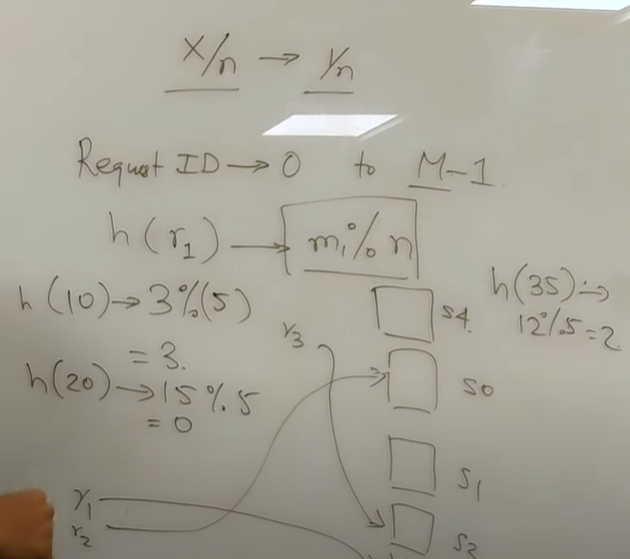 X/n → 1/n
Request ID → 0 to M-1
h(r₁) → m₁ % n
h(10) → 3 % (5)
= 3.
h(20) → 15 % 5
= 0
h(35) →
12 % 5 = 2
r₃
S4
S0
S1
S2
r₁
r₂